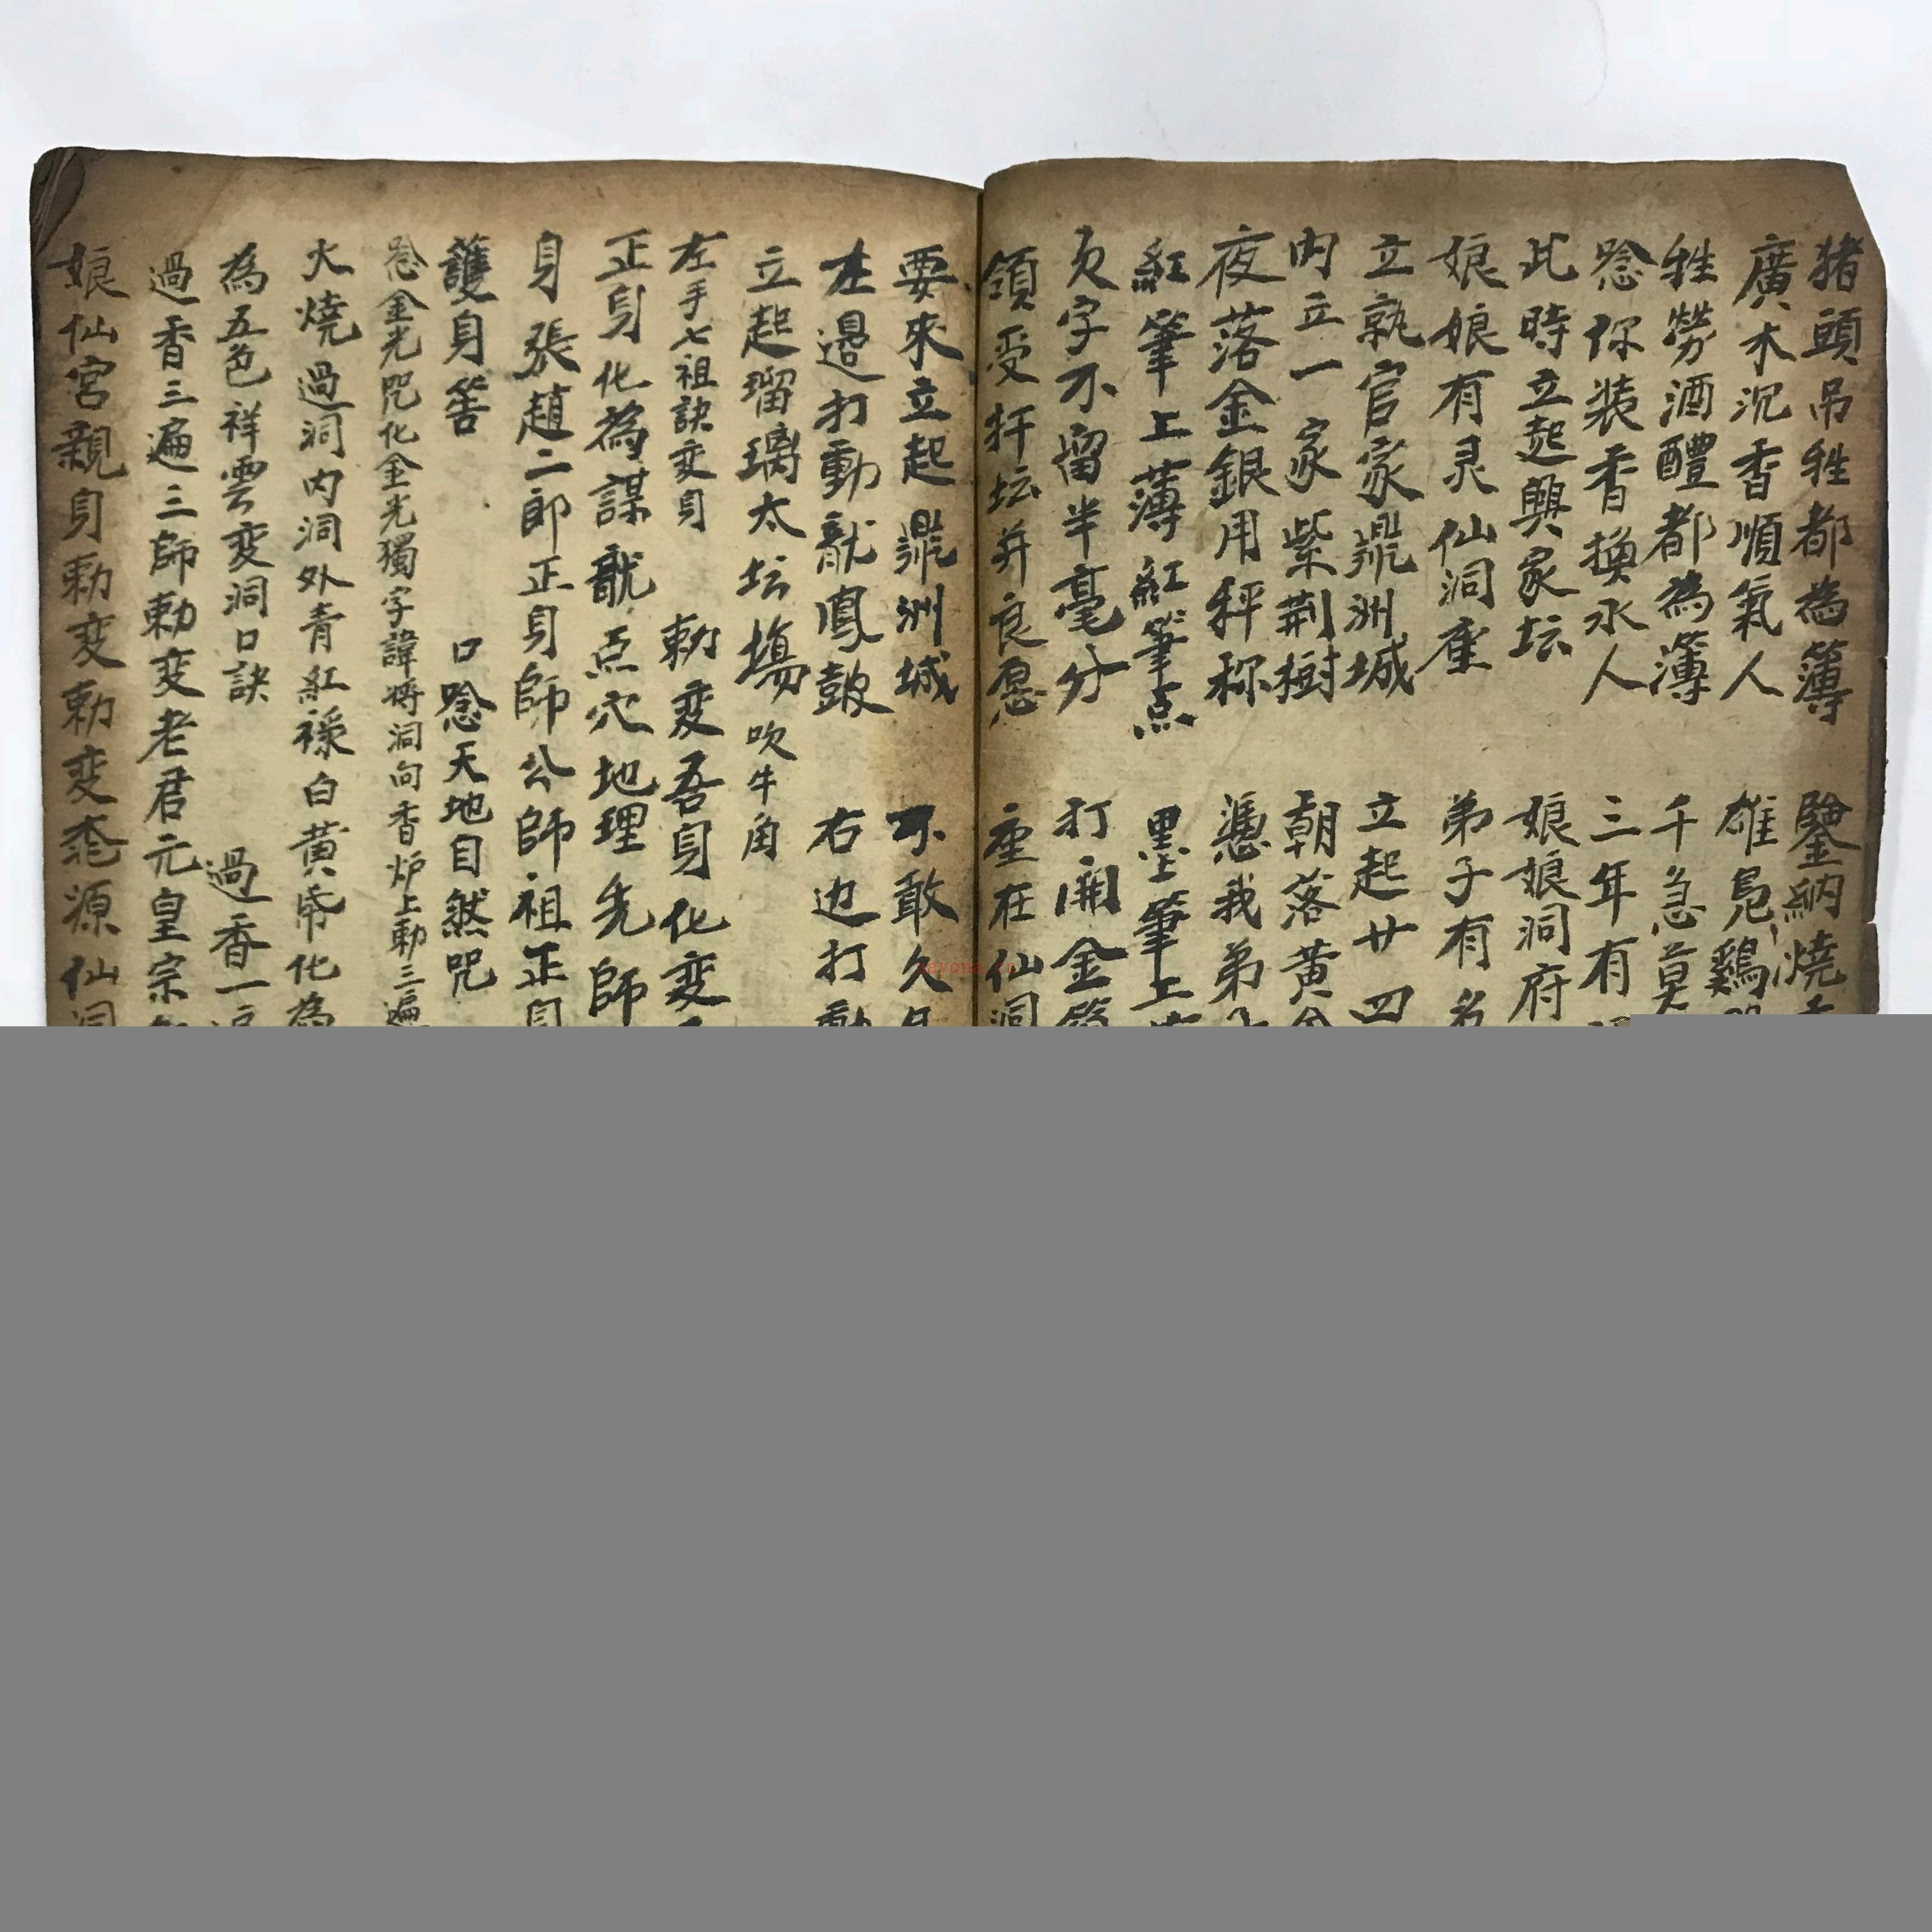 猪頭吊牲都為薄 鑒納燒
廣木沉香順氣人 雄鳧鷄
牲勞酒醴都為薄 千急莫
唸你装香換水人 三年有
此時立起興家坛 娘娘洞府
娘娘有灵仙洞座 弟子有名
立執官家鼎洲城 立起廿四
内立一家紫荆樹 朝落黄金
夜落金銀用秤称 憑我弟子
紅筆上薄紅筆点 墨筆上
欠字不留半毫分 打開金
領受扦坛并良愿 座在仙洞
要來立起鼎洲城 不敢久
左邉打動龍鳳鼓 右边打動
立起瑠璃太坛塲 吹牛角
左手七祖訣变身 勅变吾身化变
正身化為謀龍点穴地理先師
身張趙二郎正身師公師祖正身
護身筶 口唸天地自然咒
唸金光咒化金光獨字諱将洞向香炉上勅三遍
火燒過洞内洞外青紅禄白黄帋化為
為五色祥雲变洞口訣 過香一
過香三遍三師勅变老君元皇宗
娘仙宫親身勅变勅变桃源仙洞